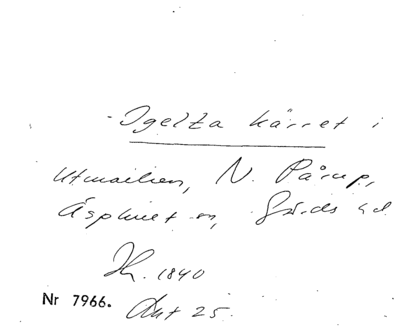 Igelsta kärret i
Utmarken, N. Pårup,
Äsphult sn, Gärds hd
1840
Nr 7966.
Akt 25.